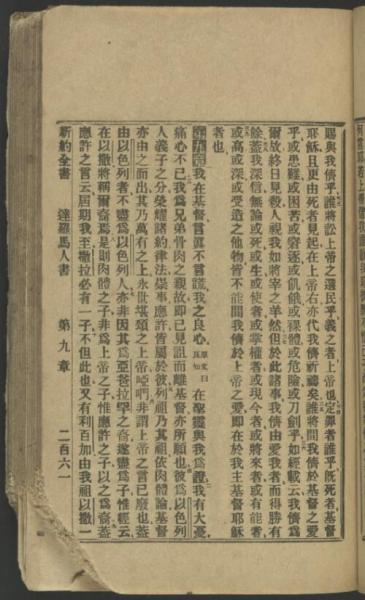 賜與我儕乎誰將訟上帝之選民乎義之者上帝也定罪者誰乎旣死者基督
耶穌且更由死者見起在上帝右亦代我儕祈禱矣誰將間我儕於基督之愛
乎或患難或困苦或窘逐或飢餓或裸體或危險或刀劍乎如經載云我儕爲
爾故終日見殺人視我如將宰之羊然但於此諸事我儕由愛我者而得勝有
餘蓋我深信無論或死或生或使者或掌權者或現今者或將來者或有能者
或高或深或受造之他物皆不能間我儕於上帝之愛卽在於我主基督耶穌
者也
第九章 我在基督言眞不言謊我之良心原文曰良知在聖靈與我爲證我有大憂
痛心不已我爲兄弟骨肉之親故卽己見詛而離基督亦所願也彼爲以色列
人義子之分榮耀諸約律法崇事應許皆屬於彼列祖乃其祖依肉體論基督
亦由之而出其乃萬有之上永世堪頌之上帝啞們非謂上帝之言已廢也蓋
由以色列者不盡爲以色列人亦非因其爲亞芭拉罕之裔遂盡爲子惟經云
在以撒將稱爾裔焉是則肉體之子非爲上帝之子惟應許之子以之爲裔蓋
應許之言云屆期我至撒拉必有一子不但此也又有利百加由我祖以撒一
新約全書 達羅馬人書 第九章 二百六一